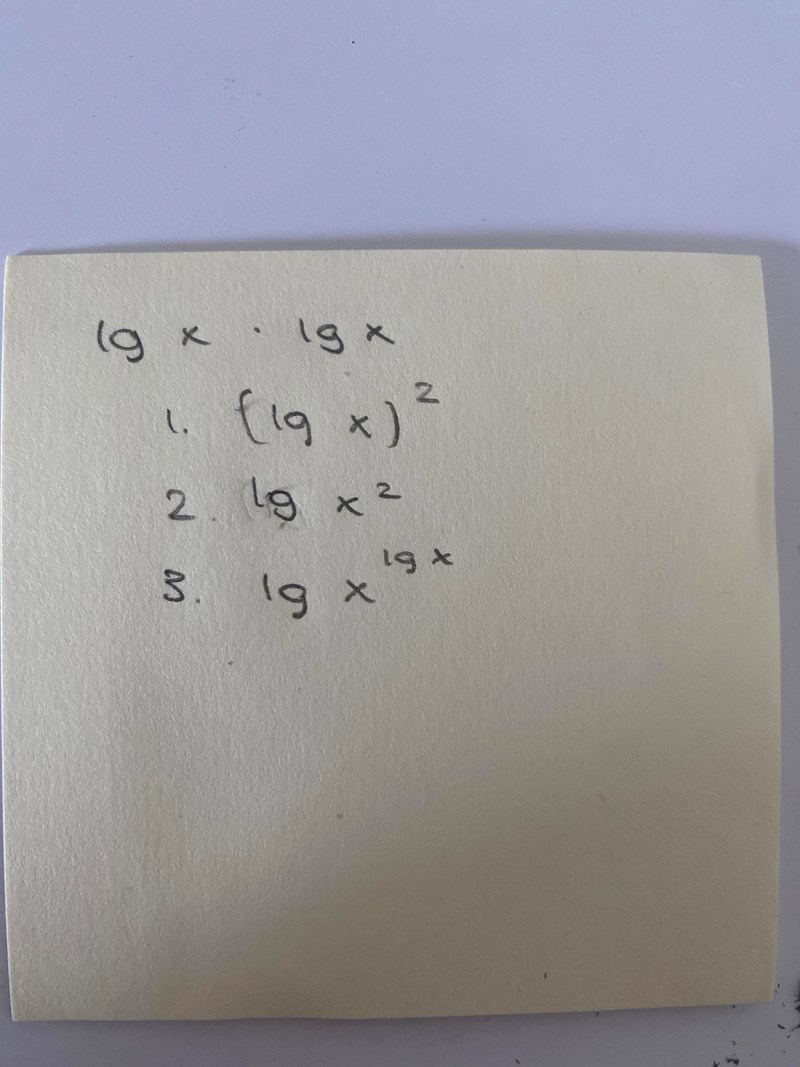 lg x · lg x
1. (lg x)²
2. lg x²
3. lg x^lg x